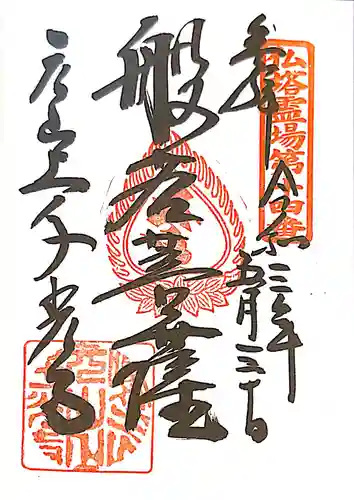 仏塔霊場第四番
奉拝 令和三年
五月三十日
般若菩薩
元山上千光寺